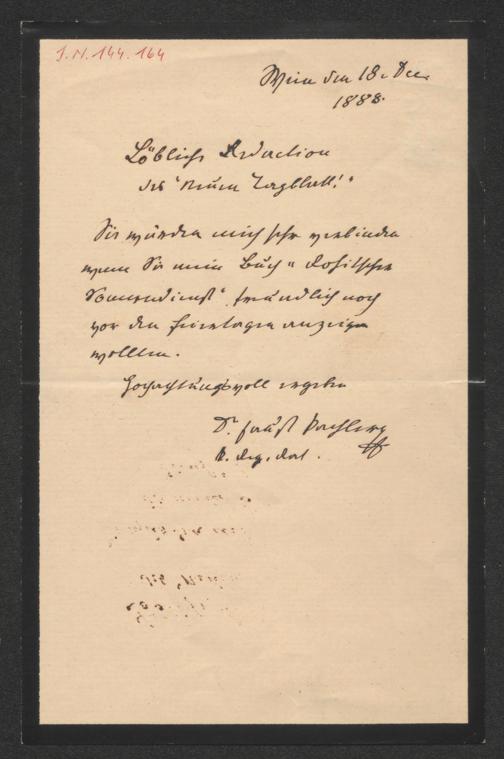 J.N. 144.164
Wien den 18. Dec.
1888.
Löbliche Redaction
des "Neuen Tagblatt!"
Sie würden mich sehr verbinden
wenn Sie mein Buch "
" freundlich noch
vor den Feiertagen anzeigen
wollten.
Hochachtungsvoll ergeben
Dr. Faust Pachler
k. Reg. Rat.